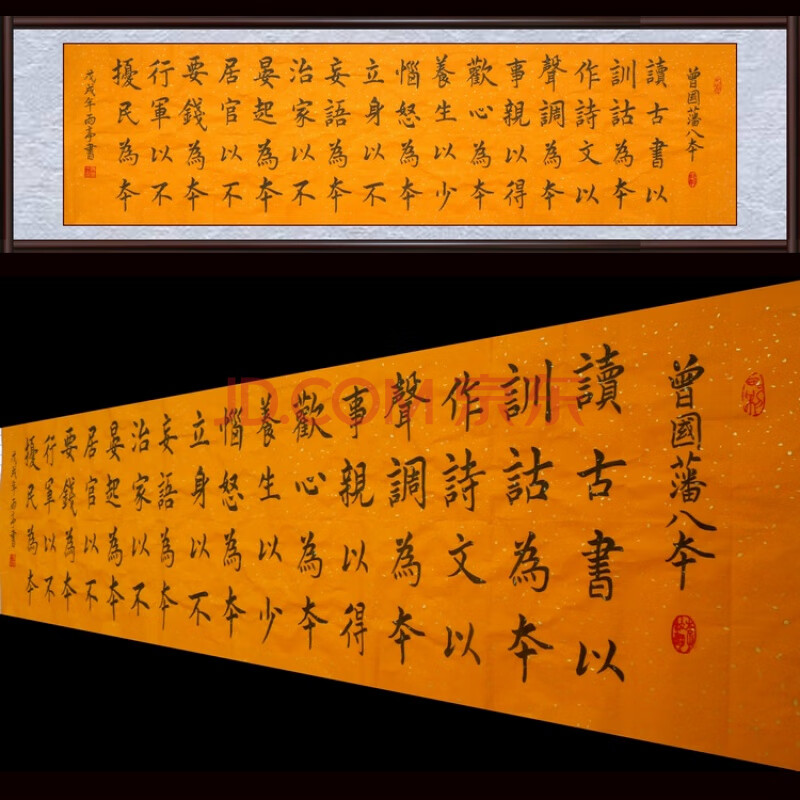 曾國藩八本
讀古書以
訓詁為本
作詩文以
聲調為本
事親以得
歡心為本
養生以少
惱怒為本
立身以不
妄語為本
治家以不
晏起為本
居官以不
要錢為本
行軍以不
擾民為本
戊戌年雨亭書
JD.COM 京东
曾國藩八本
讀古書以
訓詁為本
作詩文以
聲調為本
事親以得
歡心為本
養生以少
惱怒為本
立身以不
妄語為本
治家以不
晏起為本
居官以不
要錢為本
行軍以不
擾民為本
戊戌年雨亭書